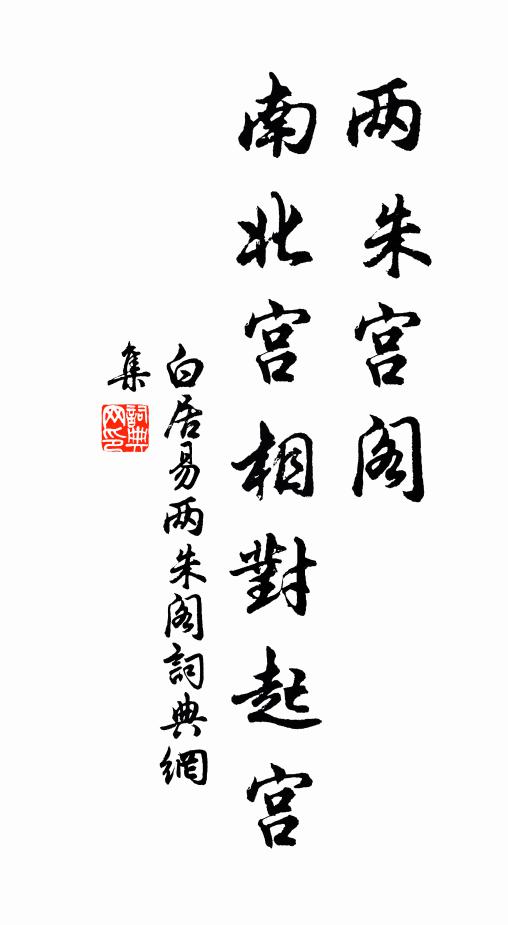 两朱宫阁
南北宫相對起宫
白居易两朱阁詞典網
集
詞典
网印